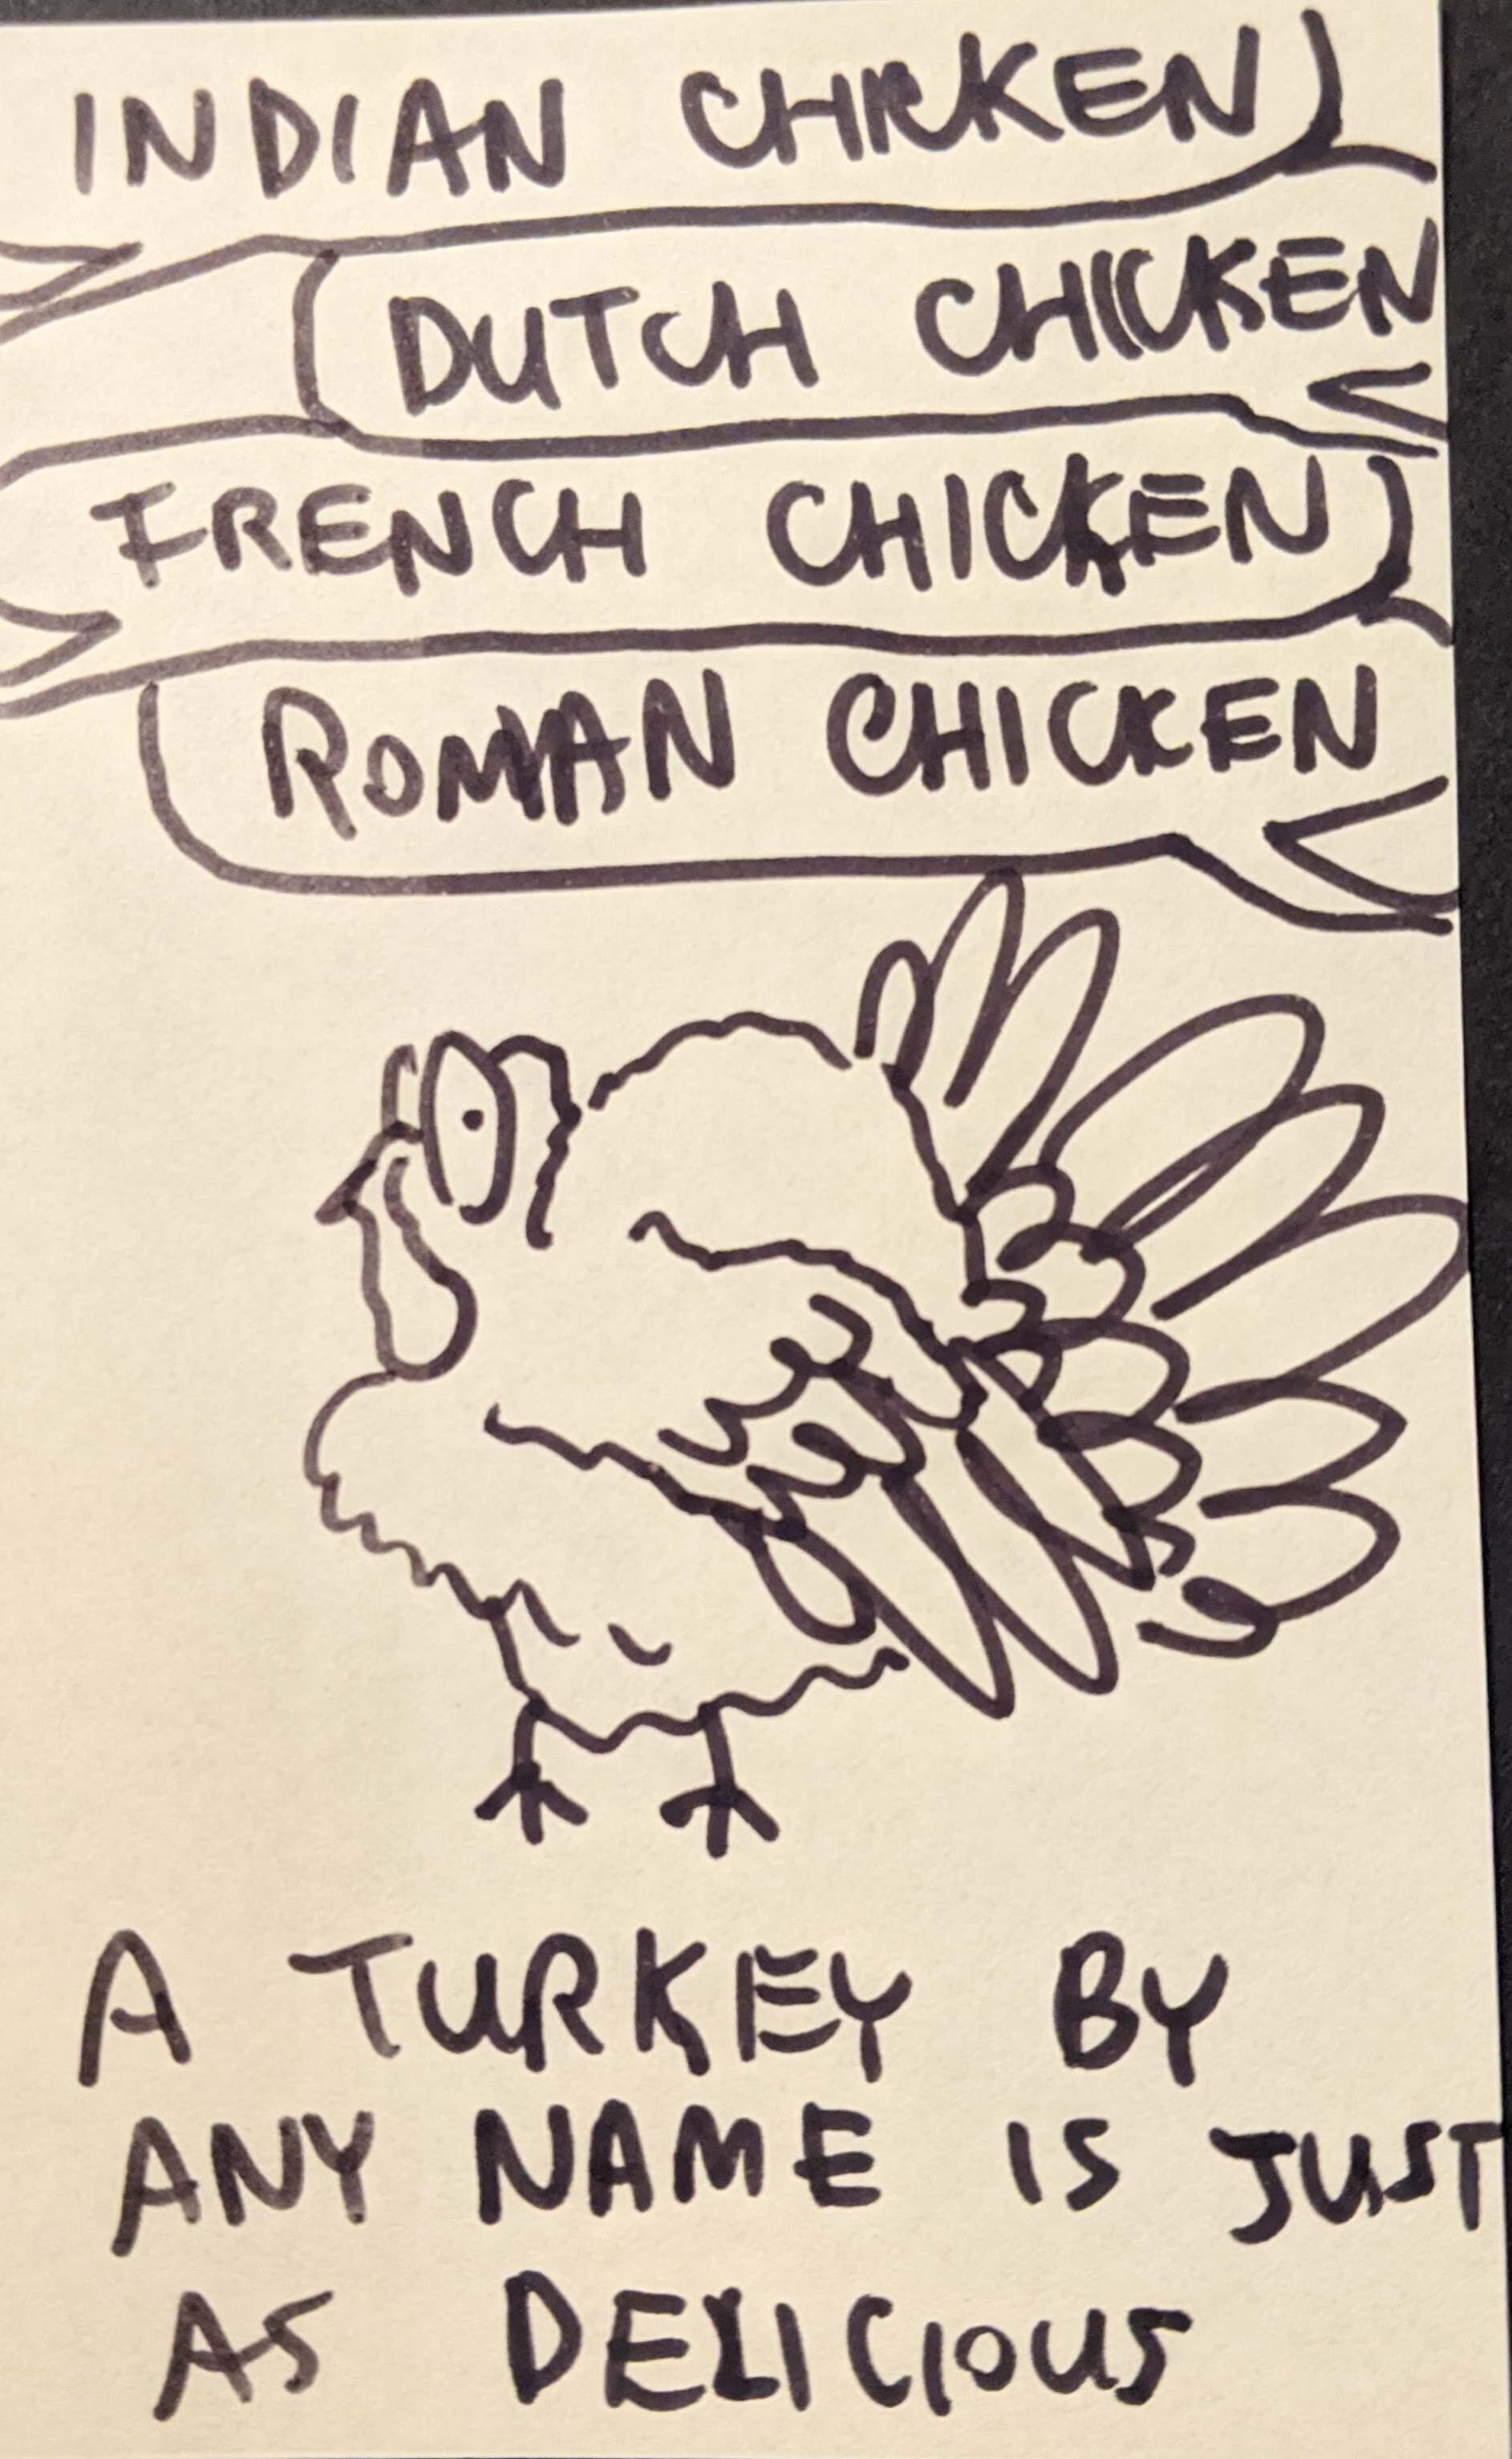 INDIAN CHICKEN
DUTCH CHICKEN
FRENCH CHICKEN
ROMAN CHICKEN
A TURKEY BY
ANY NAME IS JUST
AS DELICIOUS